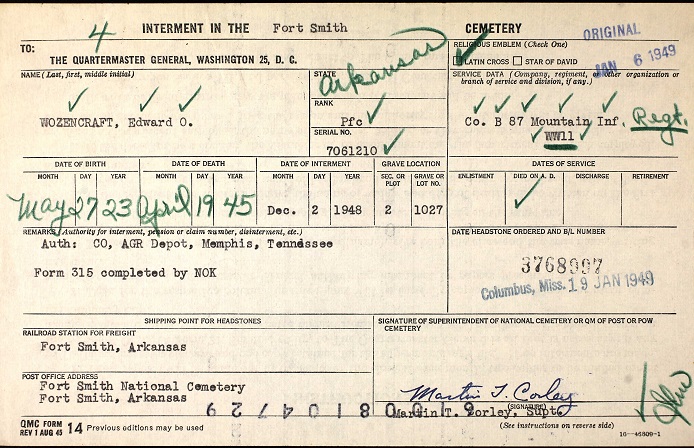 4 INTERMENT IN THE Fort Smith CEMETERY
ORIGINAL
JAN 6 1949
TO:
THE QUARTERMASTER GENERAL, WASHINGTON 25, D. C.
RELIGIOUS EMBLEM (Check One)
LATIN CROSS STAR OF DAVID
NAME (Last, first, middle initial)
WOZENCRAFT, Edward O.
STATE
Arkansas
RANK
Pfc
SERIAL NO.
7061210
SERVICE DATA (Company, regiment, or other organization or branch of service and division, if any.)
Co. B 87 Mountain Inf. Regt.
WW11
DATE OF BIRTH DATE OF DEATH DATE OF INTERMENT GRAVE LOCATION DATES OF SERVICE
MONTH DAY YEAR MONTH DAY YEAR MONTH DAY YEAR SEC. OR PLOT GRAVE OR LOT NO. ENLISTMENT DIED ON A. D. DISCHARGE RETIREMENT
May 27 23 April 19 45 Dec. 2 1948 2 1027
REMARKS (Authority for interment, pension or claim number, disinterment, etc.)
Auth: CO, AGR Depot, Memphis, Tennessee
Form 315 completed by NOK
DATE HEADSTONE ORDERED AND B/L NUMBER
3768997
Columbus, Miss. 19 JAN 1949
SHIPPING POINT FOR HEADSTONES
RAILROAD STATION FOR FREIGHT
Fort Smith, Arkansas
POST OFFICE ADDRESS
Fort Smith National Cemetery
Fort Smith, Arkansas
SIGNATURE OF SUPERINTENDENT OF NATIONAL CEMETERY OR QM OF POST OR POW CEMETERY
Martin T. Corley
(SIGNATURE)
Martin T. Corley, Supt.
(See instructions on reverse side)
QMC FORM
REV 1 AUG 45 14 Previous editions may be used
16—46809-1